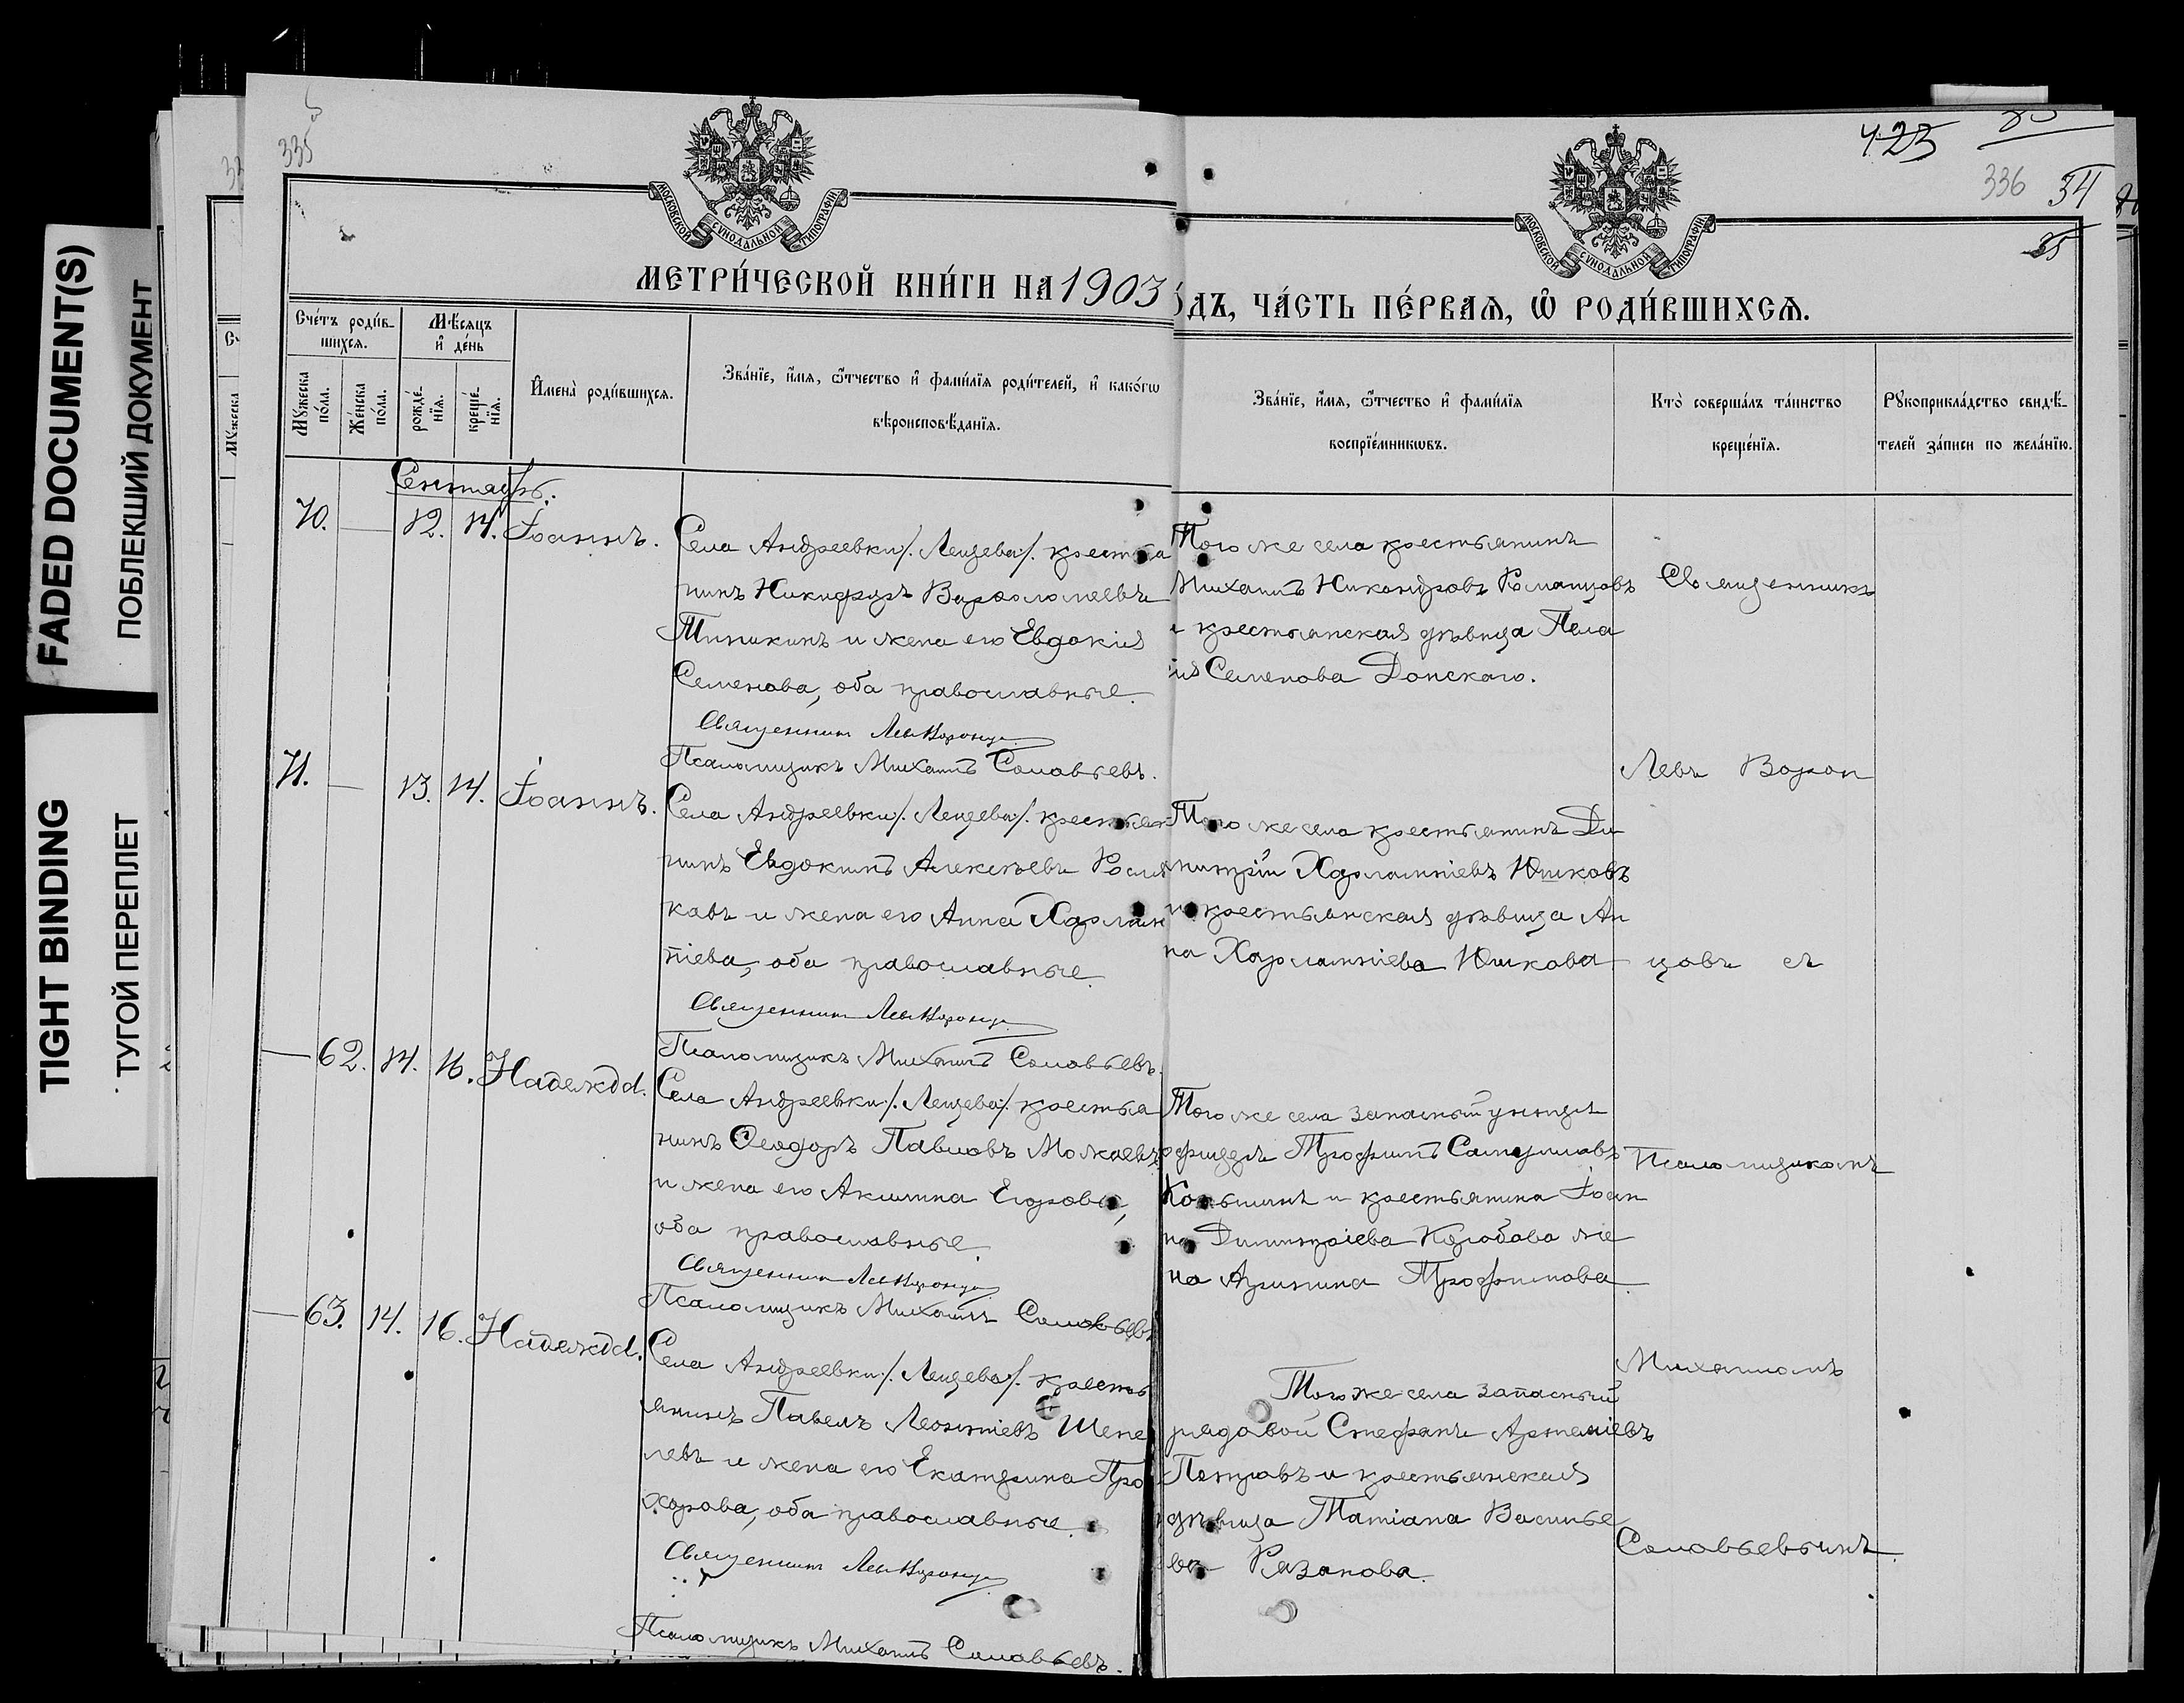 FADED DOCUMENT(S)
ПОБЛЕКШИЙ ДОКУМЕНТ
TIGHT BINDING
ТУГОЙ ПЕРЕПЛЕТ
335
423
336
34
35
МОСКОВСКОЙ СѴНОДАЛЬНОЙ ТИПОГРАФІИ
МОСКОВСКОЙ СѴНОДАЛЬНОЙ ТИПОГРАФІИ
МЕТРИ́ЧЕСКОЙ КНИ́ГИ НА 1903
О́ДЪ, ЧА́СТЬ ПЕ́РВАЯ, Ѡ҆ РОДИ́ВШИХСѦ.
Сче́тъ роди́в-
шихсѧ.
Мꙋжеска по́ла.
Же́нска по́ла.
Мѣ́сѧцъ и҆ де́нь
рожде́-нїѧ.
креще́-нїѧ.
И҆мена̀ роди́вшихсѧ.
Зва́нїе, и҆́мѧ, ѻ҆́тчество и҆ фами́лїѧ роди́телей, и҆ како́гѡ
вѣроисповѣ́данїѧ.
Зва́нїе, и҆́мѧ, ѻ҆́тчество и҆ фами́лїѧ
воспрїе́мникѡвъ.
Кто̀ соверша́лъ та́инство
креще́нїѧ.
Рꙋкоприкла́дство свидѣ́-
телей за́писи по жела́нїю.
Сентябрь.
70. — 12. 14. Іоаннъ.
Села Андреевки /. Лещева /. крестья
нинъ Никифоръ Варѳоломеевъ
Тишкинъ и жена его Евдокія
Семенова, оба православные.
Священникъ Левъ Воронцовъ
Псаломщикъ Михаилъ Соловьевъ.
Того же села крестьянинъ
Михаилъ Никандровъ Романцовъ
и крестьянская дѣвица Пела
гія Семенова Донскаго.
71. — 13. 14. Іоаннъ.
Села Андреевки /. Лещева /. крестья
нинъ Евдокимъ Алексѣевъ
ковъ и жена его Анна Харлам
піева, оба православные.
Священникъ Левъ Воронцовъ
Псаломщикъ Михаилъ Соловьевъ.
Того же села крестьянинъ Ди
митрій Харлампіевъ Юшковъ
и крестьянская дѣвица Ан
на Харлампіева Юшкова
— 62. 14. 16. Надежда.
Села Андреевки /. Лещева /. крестья
нинъ Ѳеодоръ Павловъ Можаевъ
и жена его Акилина Егорова,
оба православные.
Священникъ Левъ Воронцовъ
Псаломщикъ Михаилъ Соловьевъ
Того же села запасный унтеръ
офицеръ Трофимъ
и крестьянина Іоан
на Димитріева Коробова же
на Агрипина Трофимова
— 63. 14. 16. Надежда.
Села Андреевки /. Лещева /. кресть
янинъ Павелъ Леонтіевъ Шепе
левъ и жена его Екатерина Про
хорова, оба православные.
Священникъ Левъ Воронцовъ
Псаломщикъ Михаилъ Соловьевъ.
Того же села запасный
рядовой Стефанъ Артеміевъ
Петровъ и крестьянская
дѣвица Татіана Василье
ва Рязанова.
Священникъ
Левъ Ворон
цовъ съ
Псаломщикомъ
Михаиломъ
Соловьевымъ.